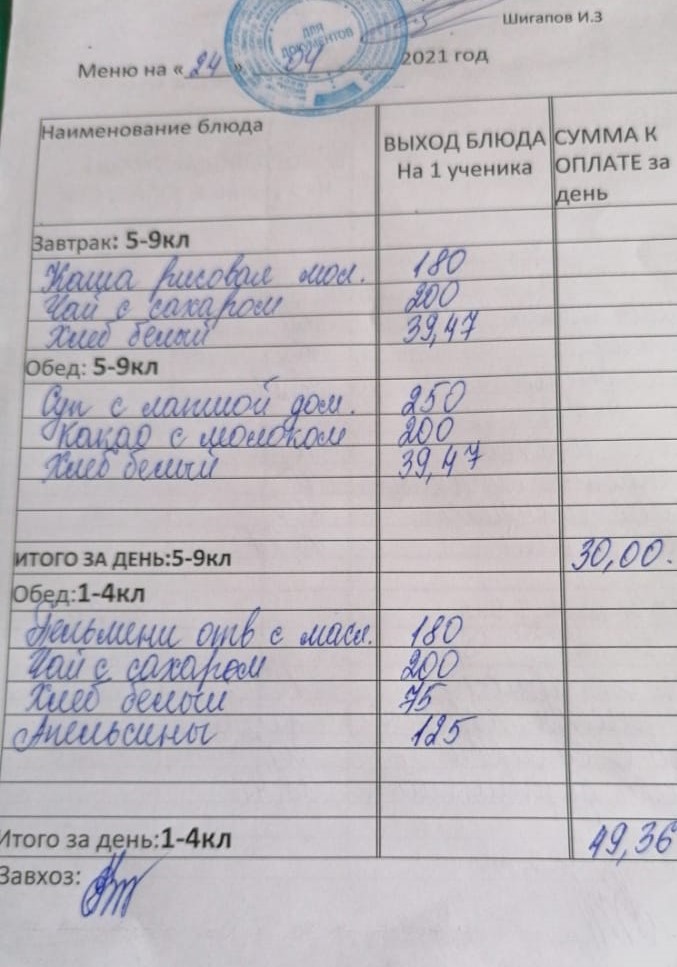 Шигапов И.З
ДЛЯ ДОКУМЕНТОВ
Меню на « 24 » 04 2021 год
Наименование блюда ВЫХОД БЛЮДА На 1 ученика СУММА К ОПЛАТЕ за день
Завтрак: 5-9кл
Каша рисовая мол. 180
Чай с сахаром 200
Хлеб белый 39,47
Обед: 5-9кл
Суп с лапшой дом. 250
Какао с молоком 200
Хлеб белый 39,47
ИТОГО ЗА ДЕНЬ:5-9кл 30,00.
Обед:1-4кл
Пельмени отв с масл. 180
Чай с сахаром 200
Хлеб белый 75
Апельсины 125
Итого за день:1-4кл 49,36
Завхоз: